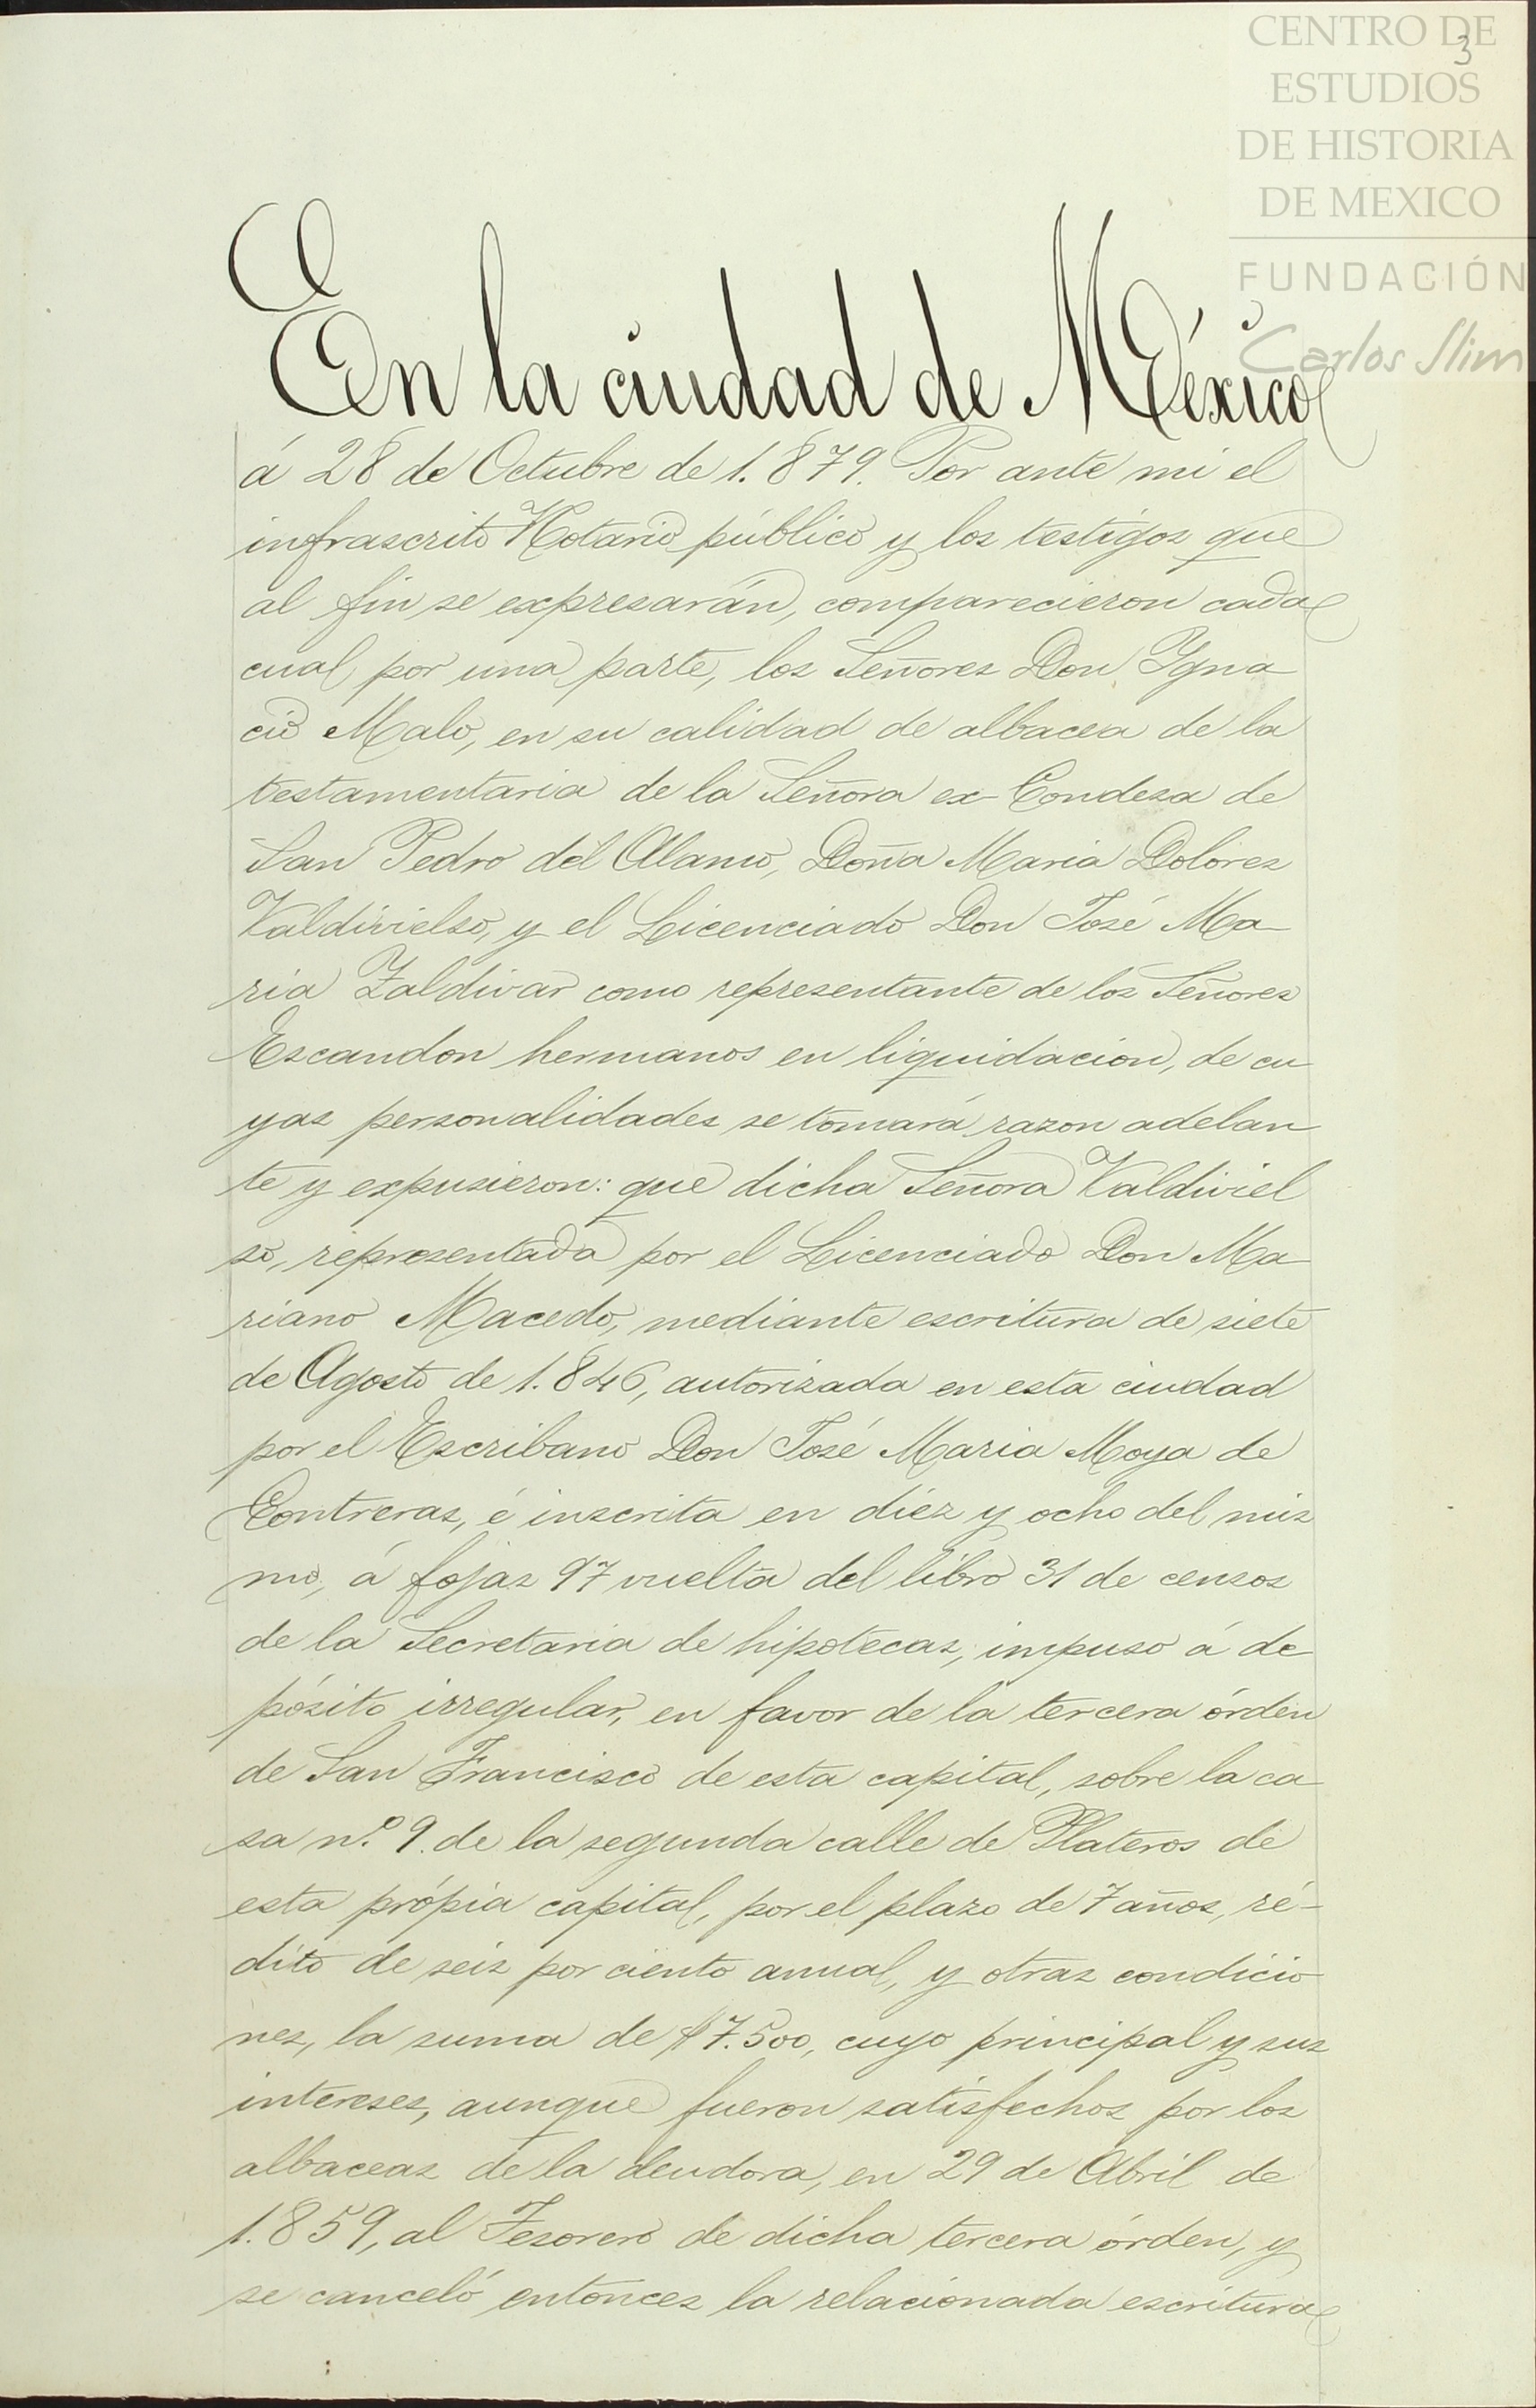 CENTRO DE
ESTUDIOS
DE HISTORIA
DE MEXICO
FUNDACIÓN
Carlos Slim
3
En la ciudad de México
á 28 de Octubre de 1.879. Por ante mi el
infrascrito Notario público y los testigos que
al fin se expresarán, comparecieron cada
cual por una parte, los Señores Don Ygna
cio Malo, en su calidad de albacea de la
testamentaria de la Señora ex-Condesa de
San Pedro del Alamo, Doña Maria Dolores
Valdivielso, y el Licenciado Don José Ma-
ria Zaldivar como representante de los Señores
Escandon hermanos en liquidacion, de cu
yas personalidades se tomará razon adelan
te y expusieron: que dicha Señora Valdiviel
so, representada por el Licenciado Don Ma-
riano Macedo, mediante escritura de siete
de Agosto de 1.846, autorizada en esta ciudad
por el Escribano Don José Maria Moya de
Contreras, é inscrita en diez y ocho del mis
mo, á fojas 97 vuelta del libro 31 de censos
de la Secretaria de hipotecas, impuso á de
pósito irregular, en favor de la tercera órden
de San Francisco de esta capital, sobre la ca
sa n.º 9. de la segunda calle de Plateros de
esta própia capital, por el plazo de 7 años, ré-
dito de seis por ciento anual, y otras condicio
nes, la suma de $7.500, cuyo principal y sus
intereses, aunque fueron satisfechos por los
albaceas de la deudora, en 29 de Abril de
1.859, al Tesorero de dicha tercera órden, y
se canceló entonces la relacionada escritura